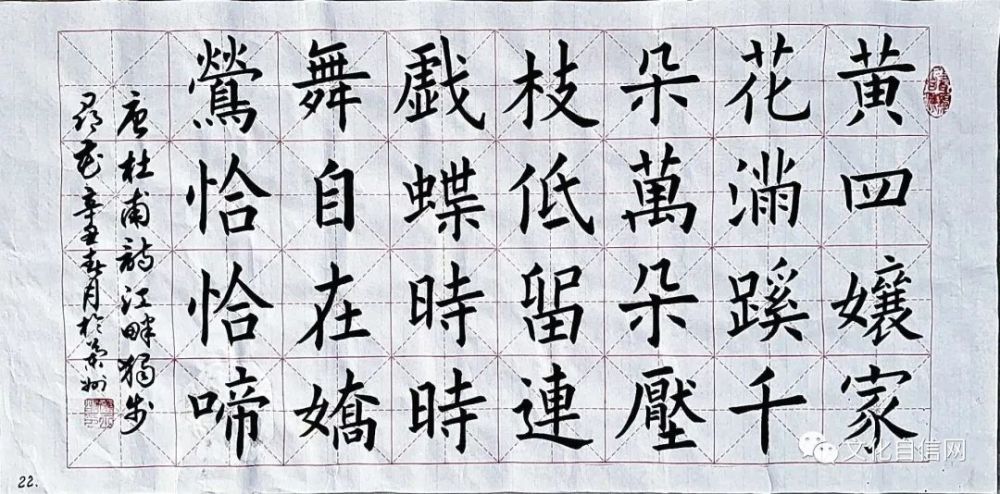 黄四孃家
花滿蹊千
朵萬朵壓
枝低留連
戯蝶時時
舞自在嬌
鶯恰恰啼
唐杜甫詩江畔獨步
尋花辛丑春月於
22.
文化自信网